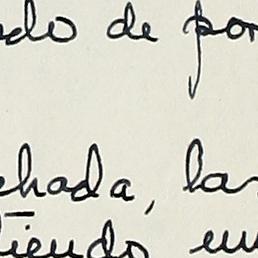 ado de por
chada, las
tiendo un